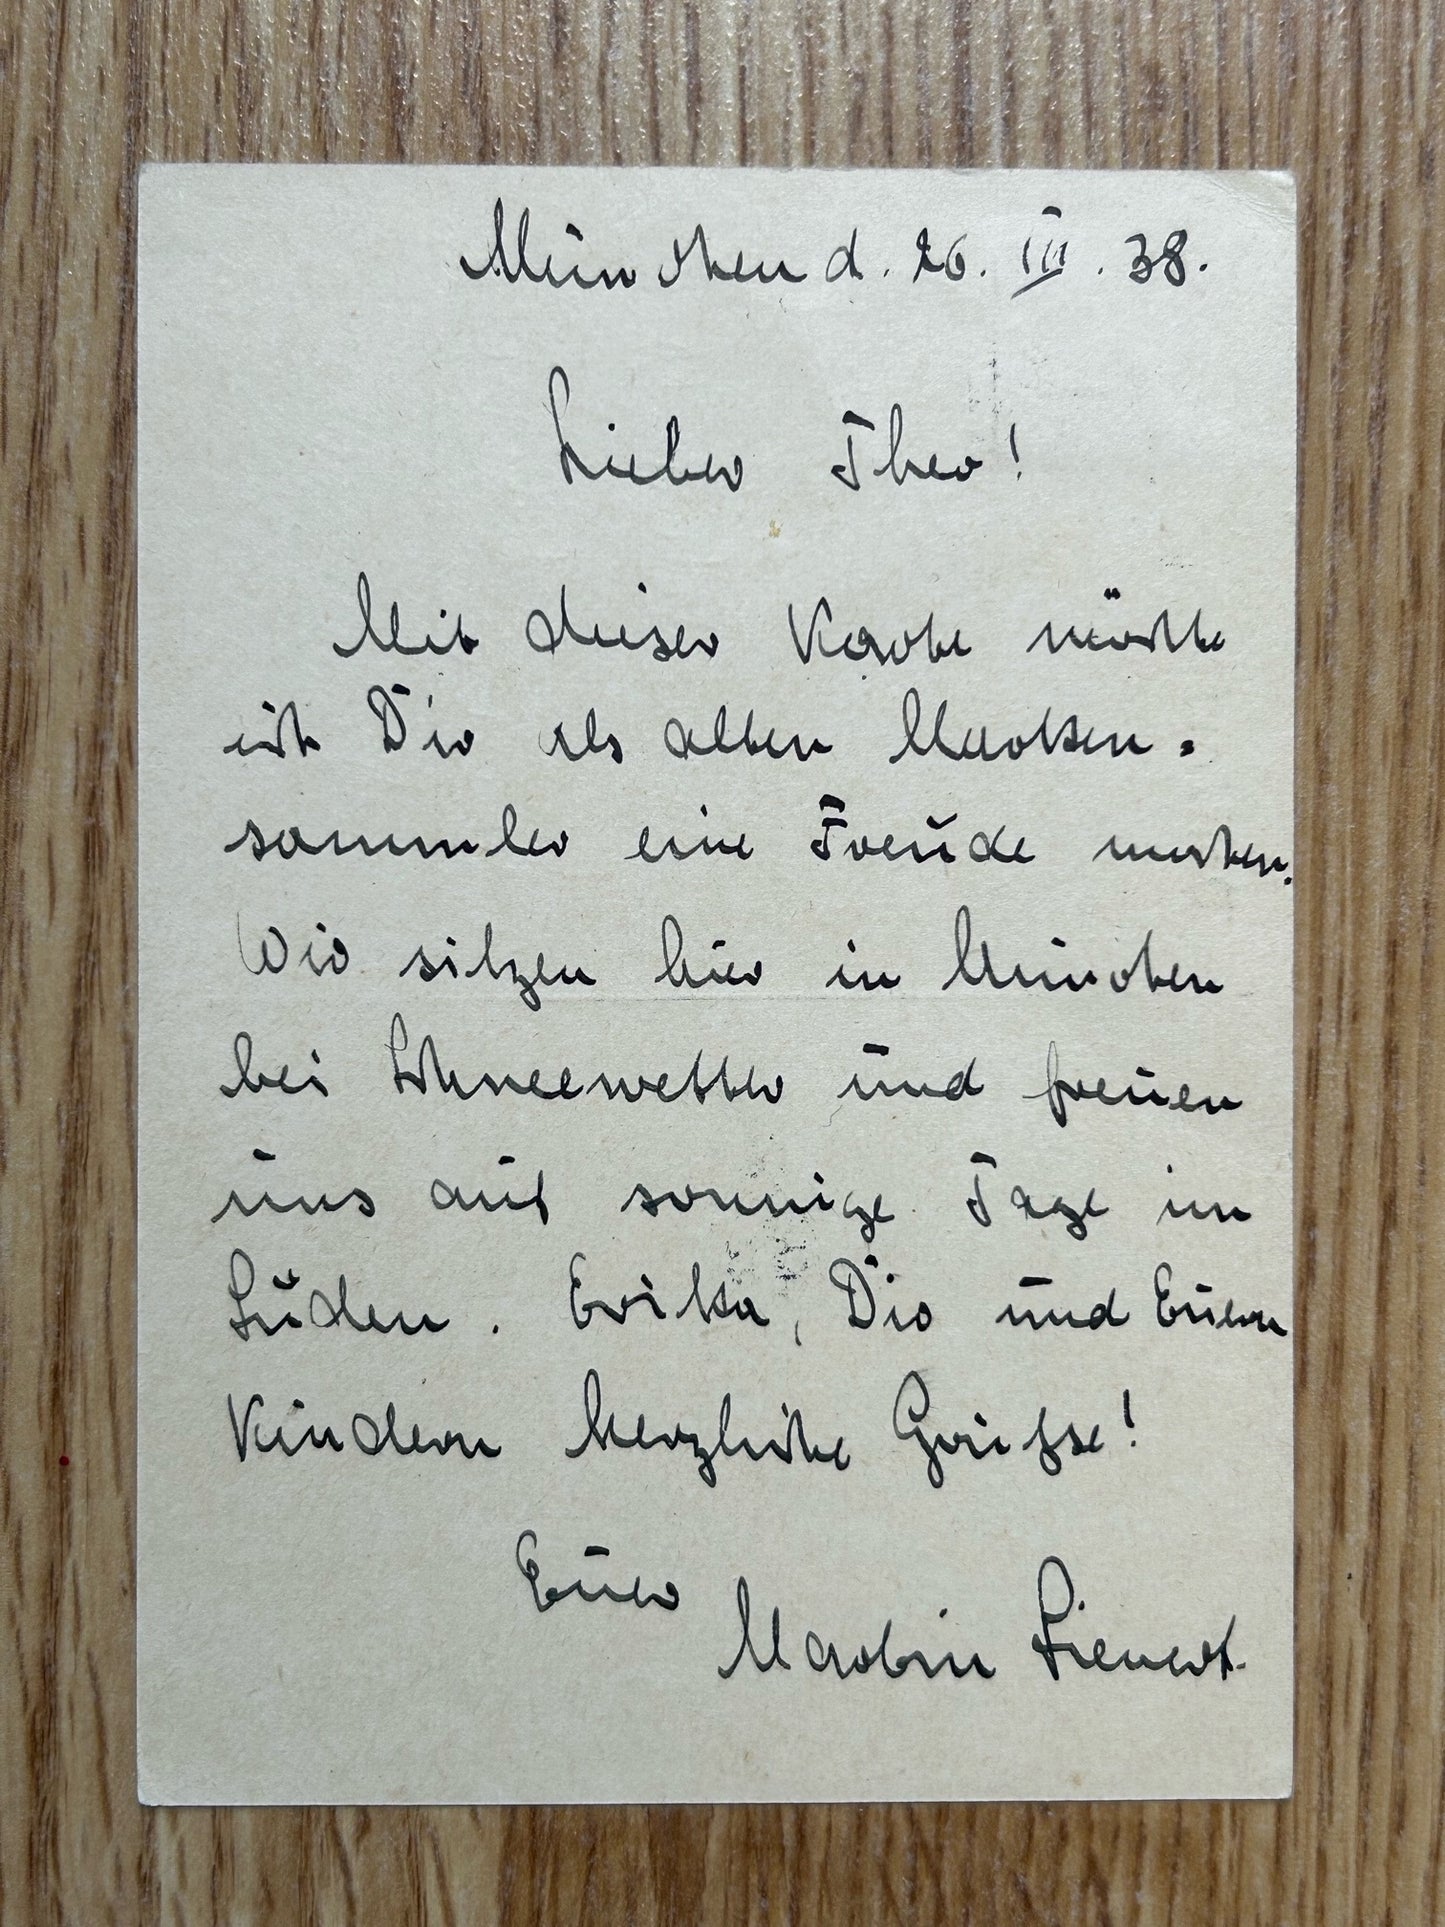 München d. 26. III. 38.
Lieber Theo!
Mit dieser Karte möchte
ich Dir als alten Marken-
sammler eine Freude machen.
Wir sitzen hier in München
bei Schneewetter und freuen
uns auf sonnige Tage im
Süden. Erika, Dir und Euern
Kindern herzliche Grüsse!
Euer
Martin Sievert.